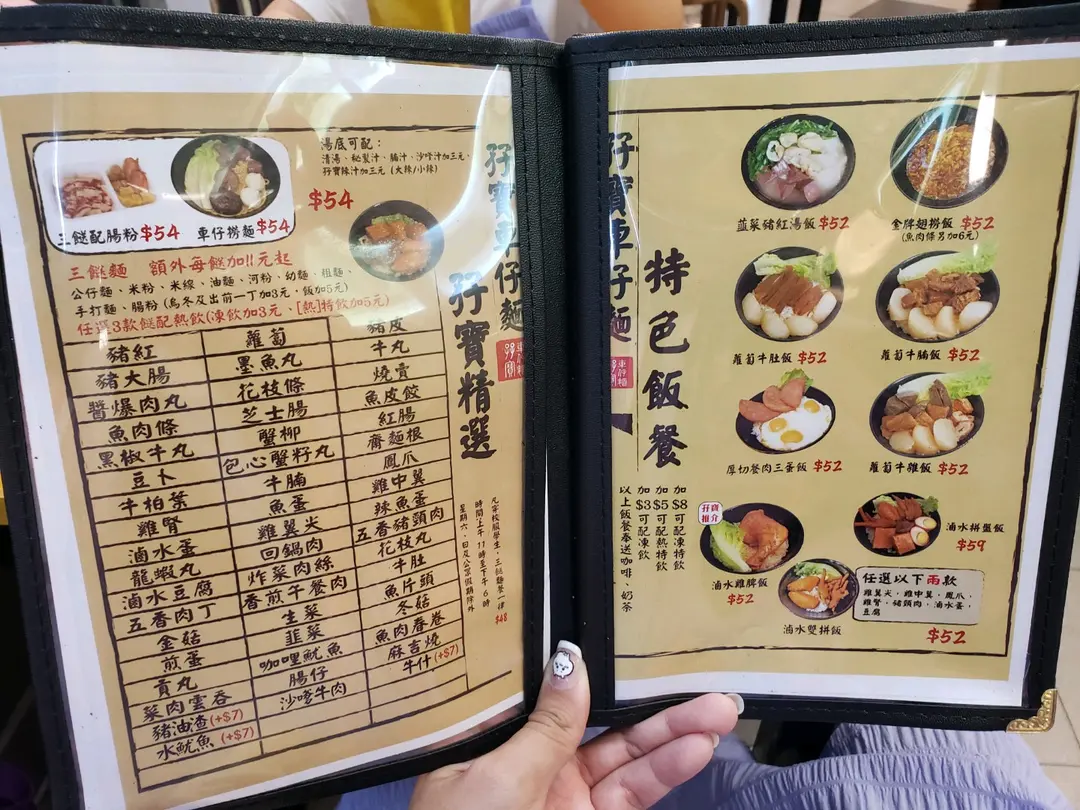 湯底可配：
清湯、秘製汁、腩汁、沙嗲汁加三元、
孖寶辣汁加三元（大辣/小辣）
$54
三餸配腸粉 $54
車仔撈麵 $54
三餸麵 額外每餸加11元起
公仔麵、米粉、米線、油麵、河粉、幼麵、粗麵、
手打麵、腸粉（烏冬及出前一丁加3元，飯加5元）
任選3款餸配熱飲（凍飲加3元、[熱]特飲加5元）
豬紅 蘿蔔 豬皮
豬大腸 墨魚丸 牛丸
醬爆肉丸 花枝條 燒賣
魚肉條 芝士腸 魚皮餃
黑椒牛丸 蟹柳 紅腸
豆卜 包心蟹籽丸 齋麵根
牛柏葉 牛腩 鳳爪
雞腎 魚蛋 雞中翼
滷水蛋 雞翼尖 辣魚蛋
龍蝦丸 回鍋肉 五香豬頸肉
滷水豆腐 炸菜肉絲 花枝丸
五香肉丁 香煎午餐肉 牛肚
金菇 生菜 魚片頭
煎蛋 韮菜 冬菇
貢丸 咖哩魷魚 魚肉春卷
菜肉雲吞 腸仔 麻吉燒
豬油渣(+$7) 沙嗲牛肉 牛什(+$7)
水魷魚(+$7)
孖寶車仔麵
孖寶精選
凡穿校服學生，三餸麵一律$48
時間：上午11時至下午6時
星期六、日及公眾假期除外
孖寶車仔麵
特色飯餐
加$8可配凍特飲
加$5可配熱特飲
加$3可配凍飲
以上飯餐奉送咖啡、奶茶
韮菜豬紅湯飯 $52
金牌翅撈飯 $52
(魚肉條另加6元)
蘿蔔牛肚飯 $52
蘿蔔牛腩飯 $52
厚切餐肉三蛋飯 $52
蘿蔔牛雜飯 $52
孖寶
推介
滷水雞髀飯
$52
滷水拼盤飯
$59
滷水雙拼飯
任選以下兩款
雞翼尖、雞中翼、鳳爪、
雞腎、豬頸肉、滷水蛋、
豆腐
$52